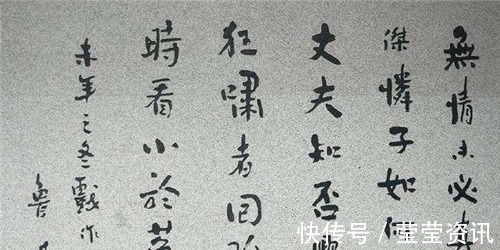 無情未必
傑憐子如何
丈夫知否
狂嘯者回
時看小於
未年之冬戲作
魯
快传号/莹莹资讯